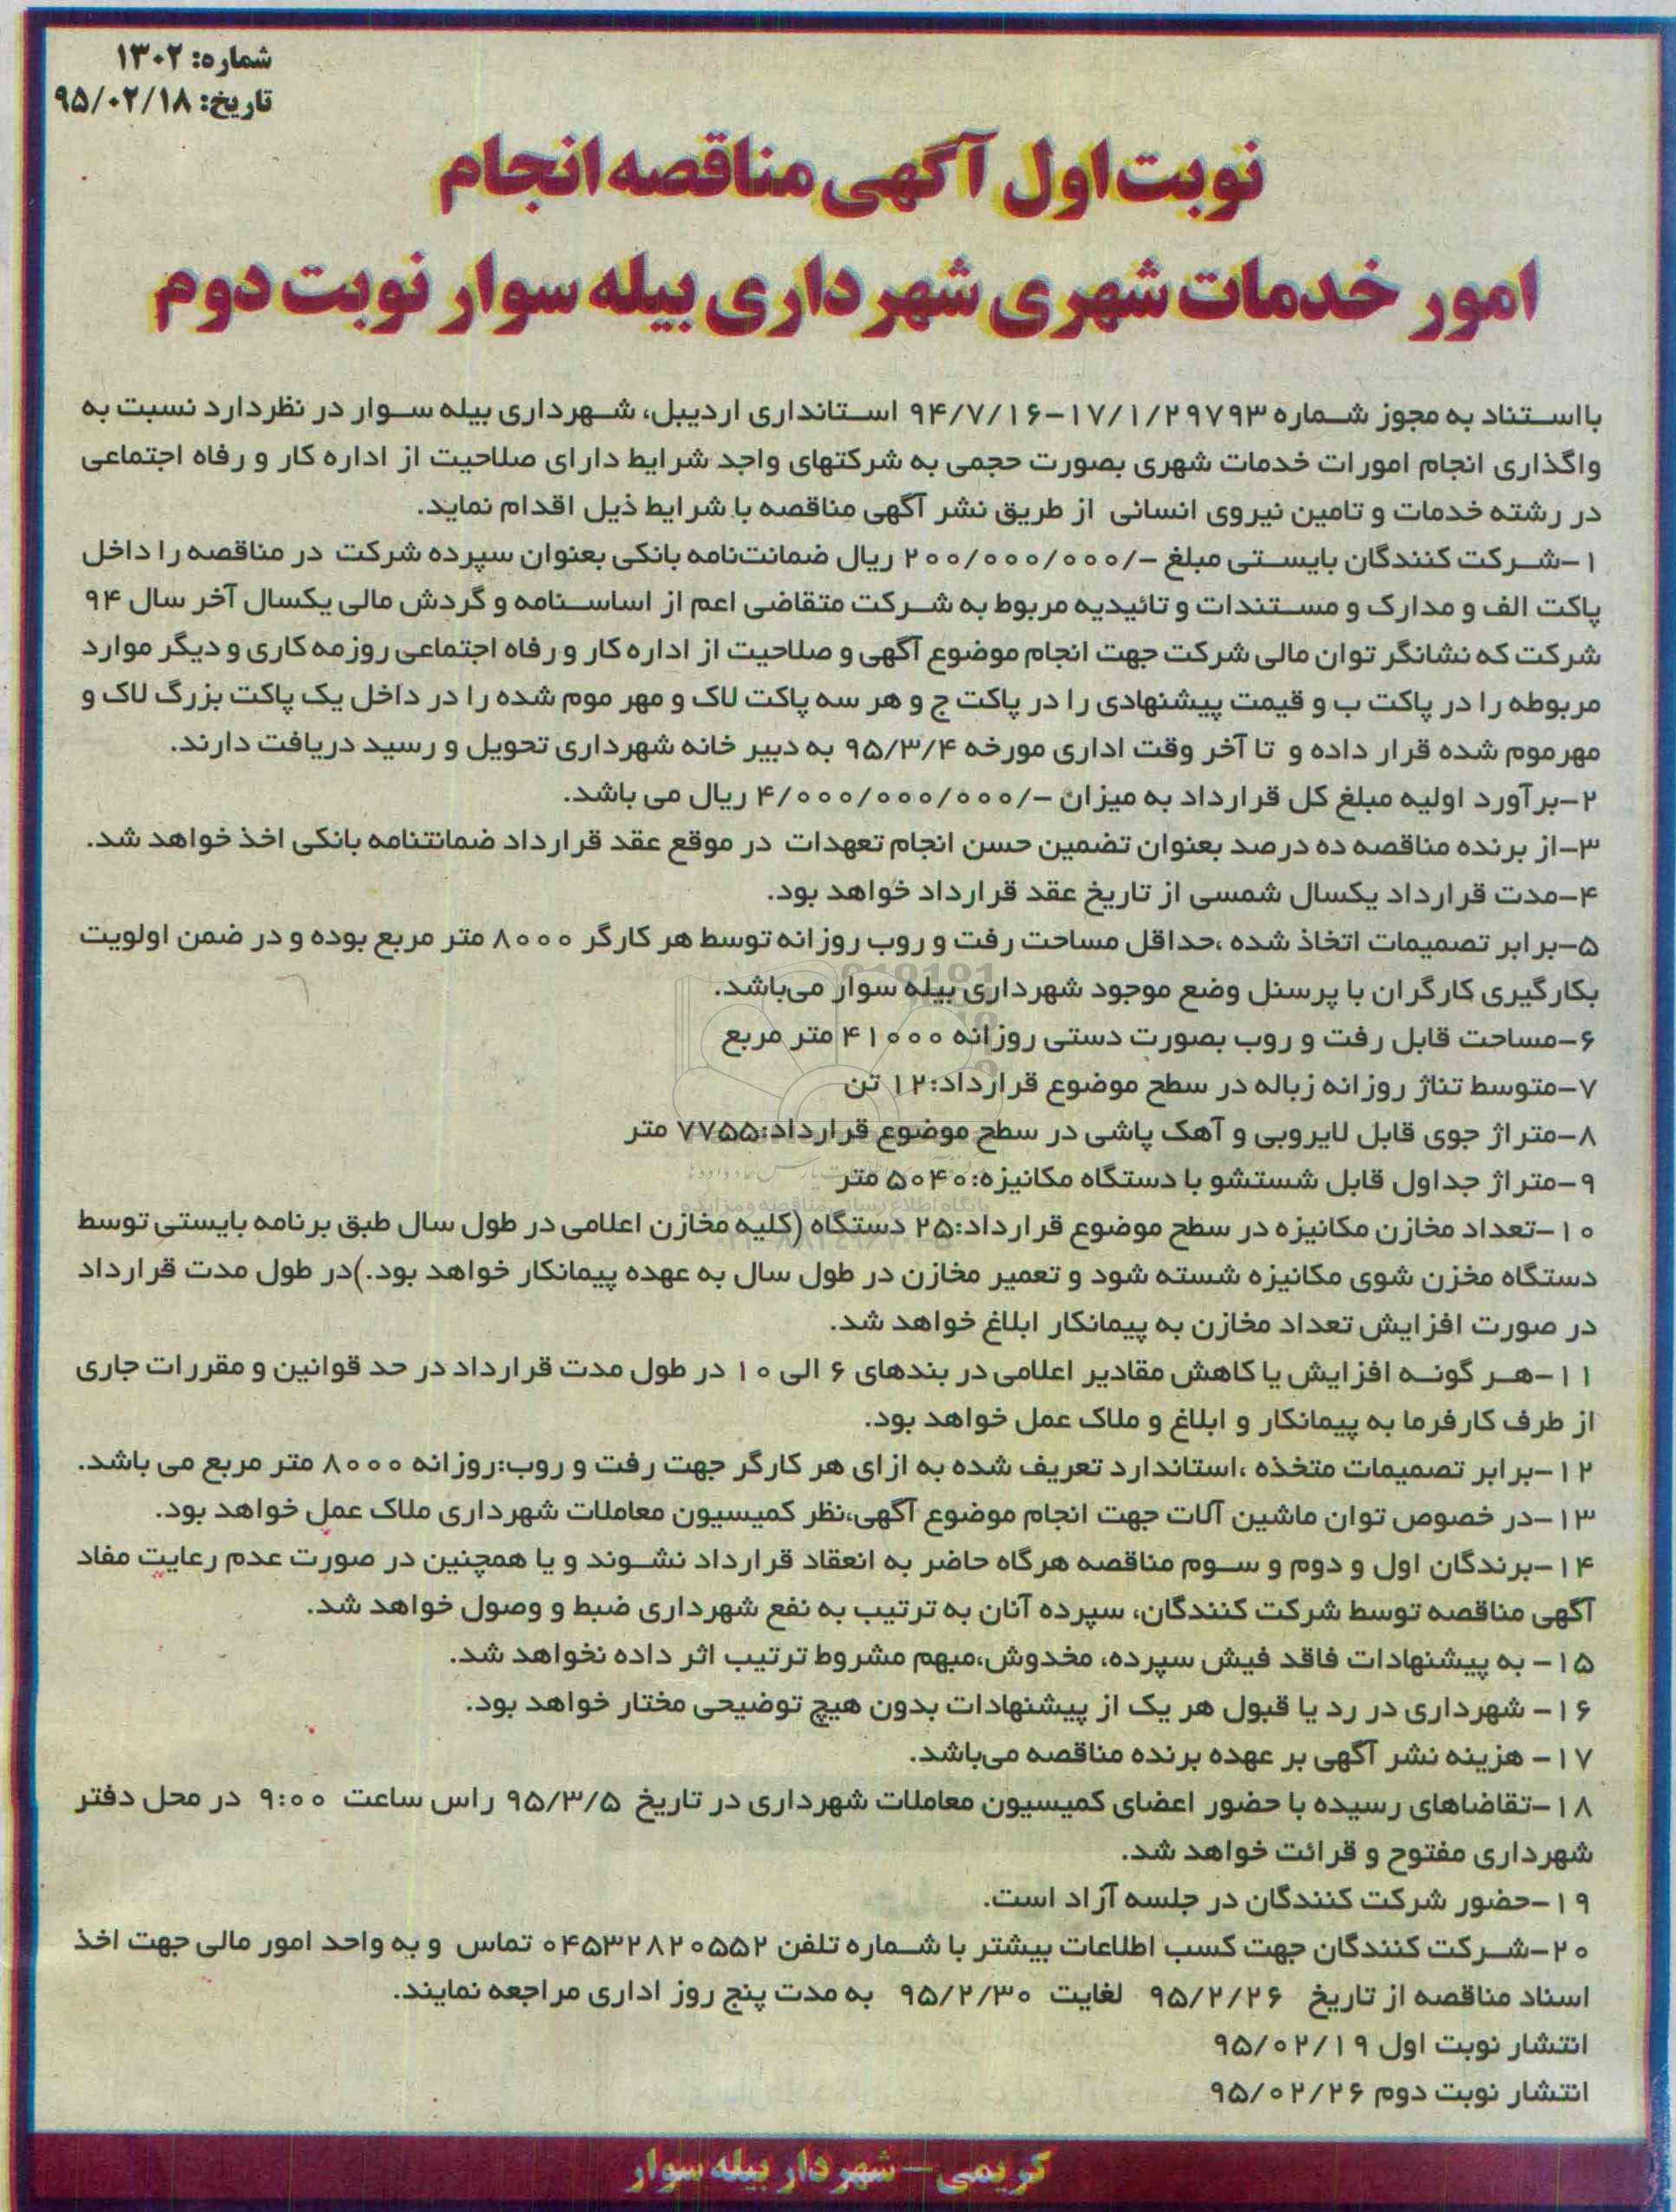 شماره: ۱۳۰۲
تاریخ: ۹۵/۰۲/۱۸
نوبت اول آگهی مناقصه انجام
امور خدمات شهری شهرداری بیله سوار نوبت دوم
بااستناد به مجوز شماره ۱۷/۱/۲۹۷۹۳-۹۴/۷/۱۶ استانداری اردیبل، شهرداری بیله سوار در نظردارد نسبت به
واگذاری انجام امورات خدمات شهری بصورت حجمی به شرکتهای واجد شرایط دارای صلاحیت از اداره کار و رفاه اجتماعی
در رشته خدمات و تامین نیروی انسانی از طریق نشر آگهی مناقصه با شرایط ذیل اقدام نماید.
۱-شرکت کنندگان بایستی مبلغ -/۲۰۰/۰۰۰/۰۰۰ ریال ضمانت‌نامه بانکی بعنوان سپرده شرکت در مناقصه را داخل
پاکت الف و مدارک و مستندات و تائیدیه مربوط به شرکت متقاضی اعم از اساسنامه و گردش مالی یکسال آخر سال ۹۴
شرکت که نشانگر توان مالی شرکت جهت انجام موضوع آگهی و صلاحیت از اداره کار و رفاه اجتماعی روزمه کاری و دیگر موارد
مربوطه را در پاکت ب و قیمت پیشنهادی را در پاکت ج و هر سه پاکت لاک و مهر موم شده را در داخل یک پاکت بزرگ لاک و
مهرموم شده قرار داده و تا آخر وقت اداری مورخه ۹۵/۳/۴ به دبیر خانه شهرداری تحویل و رسید دریافت دارند.
۲-برآورد اولیه مبلغ کل قرارداد به میزان -/۴/۰۰۰/۰۰۰/۰۰۰ ریال می باشد.
۳-از برنده مناقصه ده درصد بعنوان تضمین حسن انجام تعهدات در موقع عقد قرارداد ضمانتنامه بانکی اخذ خواهد شد.
۴-مدت قرارداد یکسال شمسی از تاریخ عقد قرارداد خواهد بود.
۵-برابر تصمیمات اتخاذ شده ،حداقل مساحت رفت و روب روزانه توسط هر کارگر ۸۰۰۰ متر مربع بوده و در ضمن اولویت
بکارگیری کارگران با پرسنل وضع موجود شهرداری بیله سوار می‌باشد.
۶-مساحت قابل رفت و روب بصورت دستی روزانه ۴۱۰۰۰ متر مربع
۷-متوسط تناژ روزانه زباله در سطح موضوع قرارداد:۱۲ تن
۸-متراژ جوی قابل لایروبی و آهک پاشی در سطح موضوع قرارداد:۷۷۵۵ متر
۹-متراژ جداول قابل شستشو با دستگاه مکانیزه:۵۰۴۰ متر
پایگاه اطلاع رسانی مناقصه و مزایده
۱۰-تعداد مخازن مکانیزه در سطح موضوع قرارداد:۲۵ دستگاه (کلیه مخازن اعلامی در طول سال طبق برنامه بایستی توسط
دستگاه مخزن شوی مکانیزه شسته شود و تعمیر مخازن در طول سال به عهده پیمانکار خواهد بود.)در طول مدت قرارداد
در صورت افزایش تعداد مخازن به پیمانکار ابلاغ خواهد شد.
۱۱-هر گونه افزایش یا کاهش مقادیر اعلامی در بندهای ۶ الی ۱۰ در طول مدت قرارداد در حد قوانین و مقررات جاری
از طرف کارفرما به پیمانکار و ابلاغ و ملاک عمل خواهد بود.
۱۲-برابر تصمیمات متخذه ،استاندارد تعریف شده به ازای هر کارگر جهت رفت و روب:روزانه ۸۰۰۰ متر مربع می باشد.
۱۳-در خصوص توان ماشین آلات جهت انجام موضوع آگهی،نظر کمیسیون معاملات شهرداری ملاک عمل خواهد بود.
۱۴-برندگان اول و دوم و سوم مناقصه هرگاه حاضر به انعقاد قرارداد نشوند و یا همچنین در صورت عدم رعایت مفاد
آگهی مناقصه توسط شرکت کنندگان، سپرده آنان به ترتیب به نفع شهرداری ضبط و وصول خواهد شد.
۱۵- به پیشنهادات فاقد فیش سپرده، مخدوش،مبهم مشروط ترتیب اثر داده نخواهد شد.
۱۶- شهرداری در رد یا قبول هر یک از پیشنهادات بدون هیچ توضیحی مختار خواهد بود.
۱۷- هزینه نشر آگهی بر عهده برنده مناقصه می‌باشد.
۱۸-تقاضاهای رسیده با حضور اعضای کمیسیون معاملات شهرداری در تاریخ ۹۵/۳/۵ راس ساعت ۹:۰۰ در محل دفتر
شهرداری مفتوح و قرائت خواهد شد.
۱۹-حضور شرکت کنندگان در جلسه آزاد است.
۲۰-شرکت کنندگان جهت کسب اطلاعات بیشتر با شماره تلفن ۰۴۵۳۲۸۲۰۵۵۲ تماس و به واحد امور مالی جهت اخذ
اسناد مناقصه از تاریخ ۹۵/۲/۲۶ لغایت ۹۵/۲/۳۰ به مدت پنج روز اداری مراجعه نمایند.
انتشار نوبت اول ۹۵/۰۲/۱۹
انتشار نوبت دوم ۹۵/۰۲/۲۶
کریمی - شهردار بیله سوار